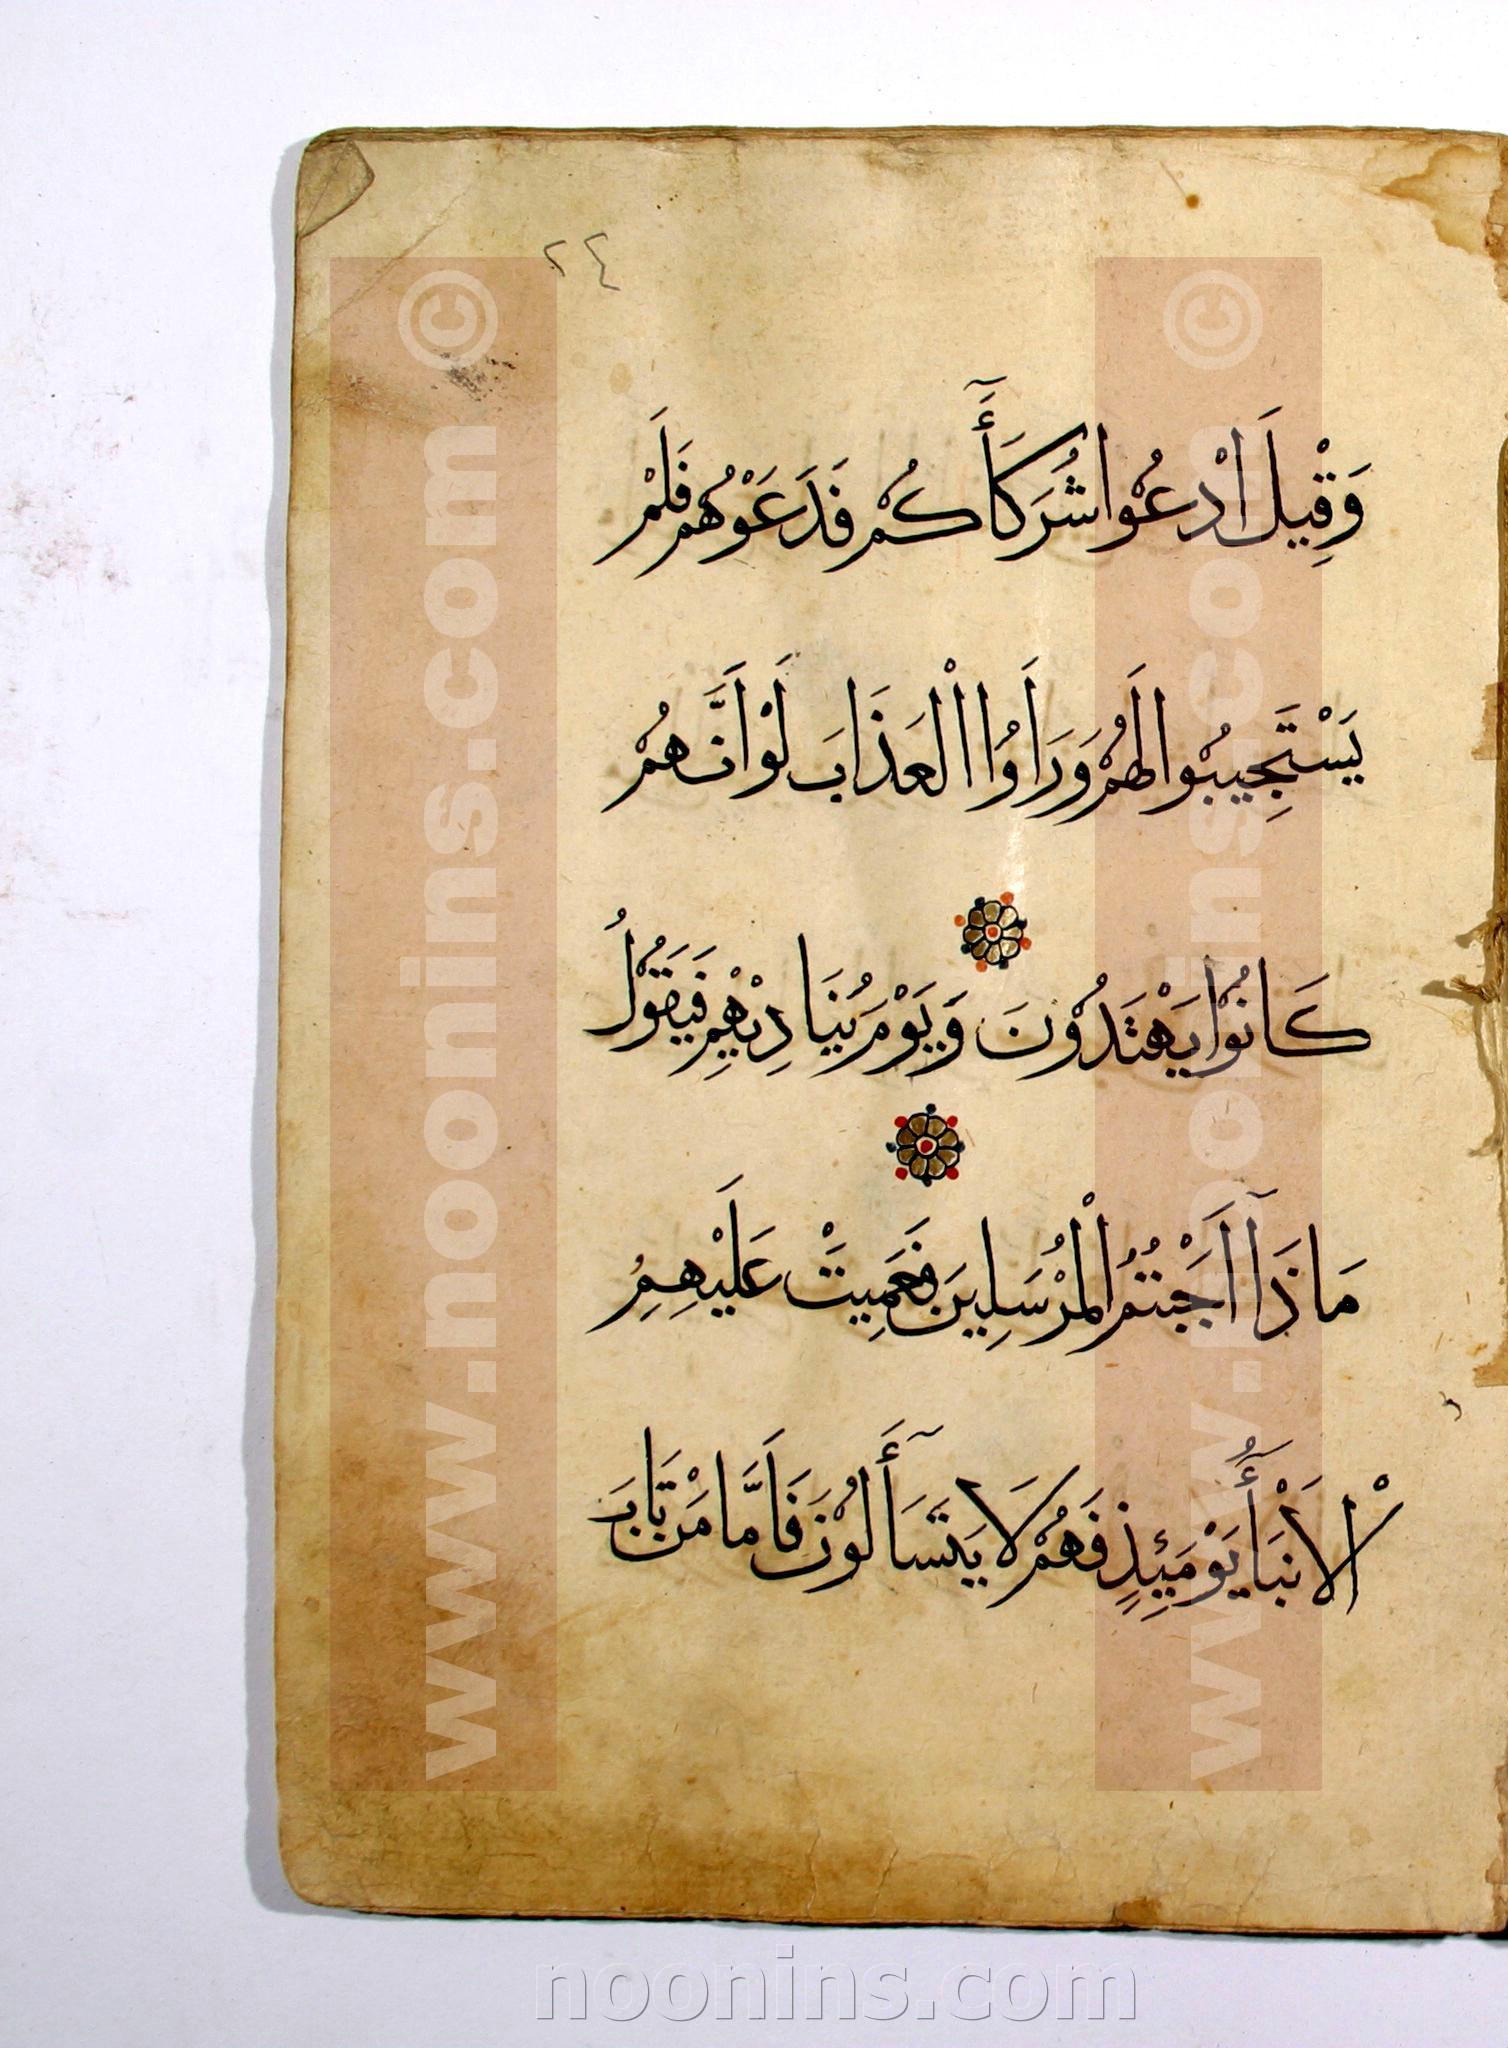 ٢٤
وَقِيلَ ادْعُوا شُرَكَآءَكُمْ فَدَعَوْهُمْ فَلَمْ
يَسْتَجِيبُوا لَهُمْ وَرَاَوُا الْعَذَابَ لَوْ اَنَّهُمْ
كَانُوا يَهْتَدُونَ وَيَوْمَ يُنَادِيْهِمْ فَيَقُولُ
مَاذَآ اَجَبْتُمُ الْمُرْسَلِينَ فَعَمِيَتْ عَلَيْهِمُ
الْاَنْبَآءُ يَوْمَئِذٍ فَهُمْ لَا يَتَسَآءَلُونَ فَاَمَّا مَنْ تَابَ
www.noonins.com ©
www.noonins.com ©
noonins.com